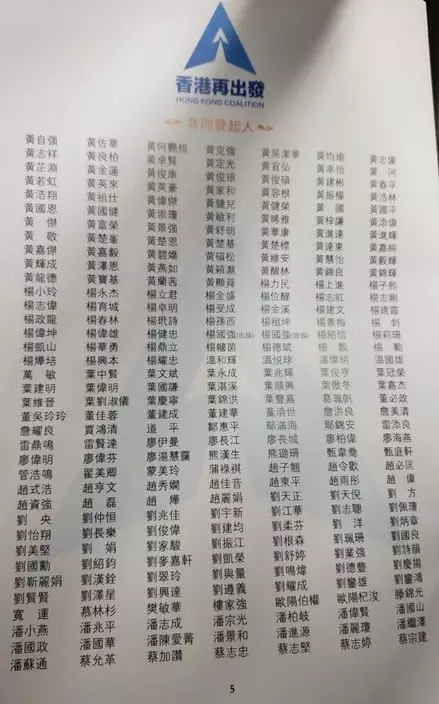 香港再出發
HONG KONG COALITION
共同發起人
黃自強 黃佐華 黃何鸝桃 黃克強 黃吳潔華 黃均瑜 黃志偉
黃志祥 黃良柏 黃卓賢 黃定光 黃宜弘 黃幸怡 黃 河
黃芷淵 黃金蓮 黃俊康 黃俊琅 黃俊碩 黃建彬 黃春平
黃若虹 黃英來 黃英豪 黃家和 黃容根 黃振權 黃浩林
黃浩翔 黃祖仕 黃偉傑 黃健兒 黃健榮 黃 國 黃國平
黃國恩 黃國健 黃崇瓊 黃敏利 黃晞雅 黃梓謙 黃添偉
黃 傑 黃富榮 黃景強 黃舒明 黃華康 黃進達 黃進輝
黃 敬 黃楚峯 黃楚恩 黃楚基 黃楚標 黃達東 黃嘉純
黃嘉傑 黃嘉毅 黃碧嬌 黃碩松 黃維安 黃慧怡 黃毅輝
黃輝成 黃澤恩 黃燕如 黃穎灝 黃醒林 黃錦良 黃錦輝
黃龍德 黃寶基 黃蘭茜 黃顯舜 楊力民 楊上進 楊子熙
楊小玲 楊永杰 楊立君 楊全盛 楊位醒 楊志紅 楊志剛
楊志偉 楊育城 楊卓明 楊受成 楊金溪 楊建文 楊建霞
楊政龍 楊春林 楊玳詩 楊孫西 楊祖坤 楊素梅 楊 釗
楊偉坤 楊偉雄 楊健忠 楊國強(出版) 楊國強 楊紹信 楊莉珊
楊凱山 楊華勇 楊鼎立 楊德斌 楊 毅 楊 勳
楊燁培 楊興本 楊耀忠 溫和輝 溫悅球 溫偉明 溫國雄
萬 敏 葉中賢 葉文斌 葉永成 葉兆輝 葉俊亨 葉冠榮
葉建明 葉偉明 葉國謙 葉湛溪 葉順興 葉傲冬 葉嘉杰
葉維晉 葉劉淑儀 葉慶寧 葉錦洪 葉豐嘉 葛珮帆 董亦政
董吳玲玲 董佳蓉 董建成 董建華 董清世 詹洪良 詹美清
詹耀良 賈鴻清 道 平 鄒惠平 鄔滿海 鄔錦安 雷添良
雷鼎鳴 雷賢達 廖伊曼 廖長江 廖長城 廖柏偉 廖海燕
廖偉明 廖偉芬 廖湯慧靄 熊漢生 熊璐珊 甄韋喬 甄庭軒
管浩鳴 翟美卿 蒙美玲 蒲祿祺 趙子翹 趙令歡 趙必匡
趙式浩 趙亨文 趙秀嫻 趙佳音 趙東平 趙雨彤 趙 偉
趙資強 趙 磊 趙 燁 趙麗娟 劉天正 劉天倪 劉 方
劉 央 劉仲恒 劉兆佳 劉宇新 劉江華 劉志聰 劉佩瓊
劉怡翔 劉長樂 劉俊偉 劉建均 劉柔芬 劉 洋 劉炳章
劉美堅 劉 娟 劉家駿 劉振江 劉根森 劉珮珊 劉國良
劉國勳 劉紹鈞 劉麥嘉軒 劉凱榮 劉舒婷 劉業強 劉詩韻
劉靳麗娟 劉漢銓 劉翠玲 劉與量 劉鳴煒 劉德豐 劉慶揚
劉賢賢 劉澤星 劉興達 劉遵義 劉耀成 劉鑾雄 劉鑾鴻
寬 運 慕林杉 樊敏華 樓家強 歐陽伯權 歐陽杞浚 滕錦光
潘小燕 潘兆平 潘志成 潘宗光 潘柏岐 潘偉賢 潘國山
潘國政 潘國華 潘陳愛菁 潘景和 潘進源 潘麗瓊 潘繼澤
潘蘇通 蔡允革 蔡加讚 蔡志忠 蔡志堅 蔡志婷 蔡宗建
5